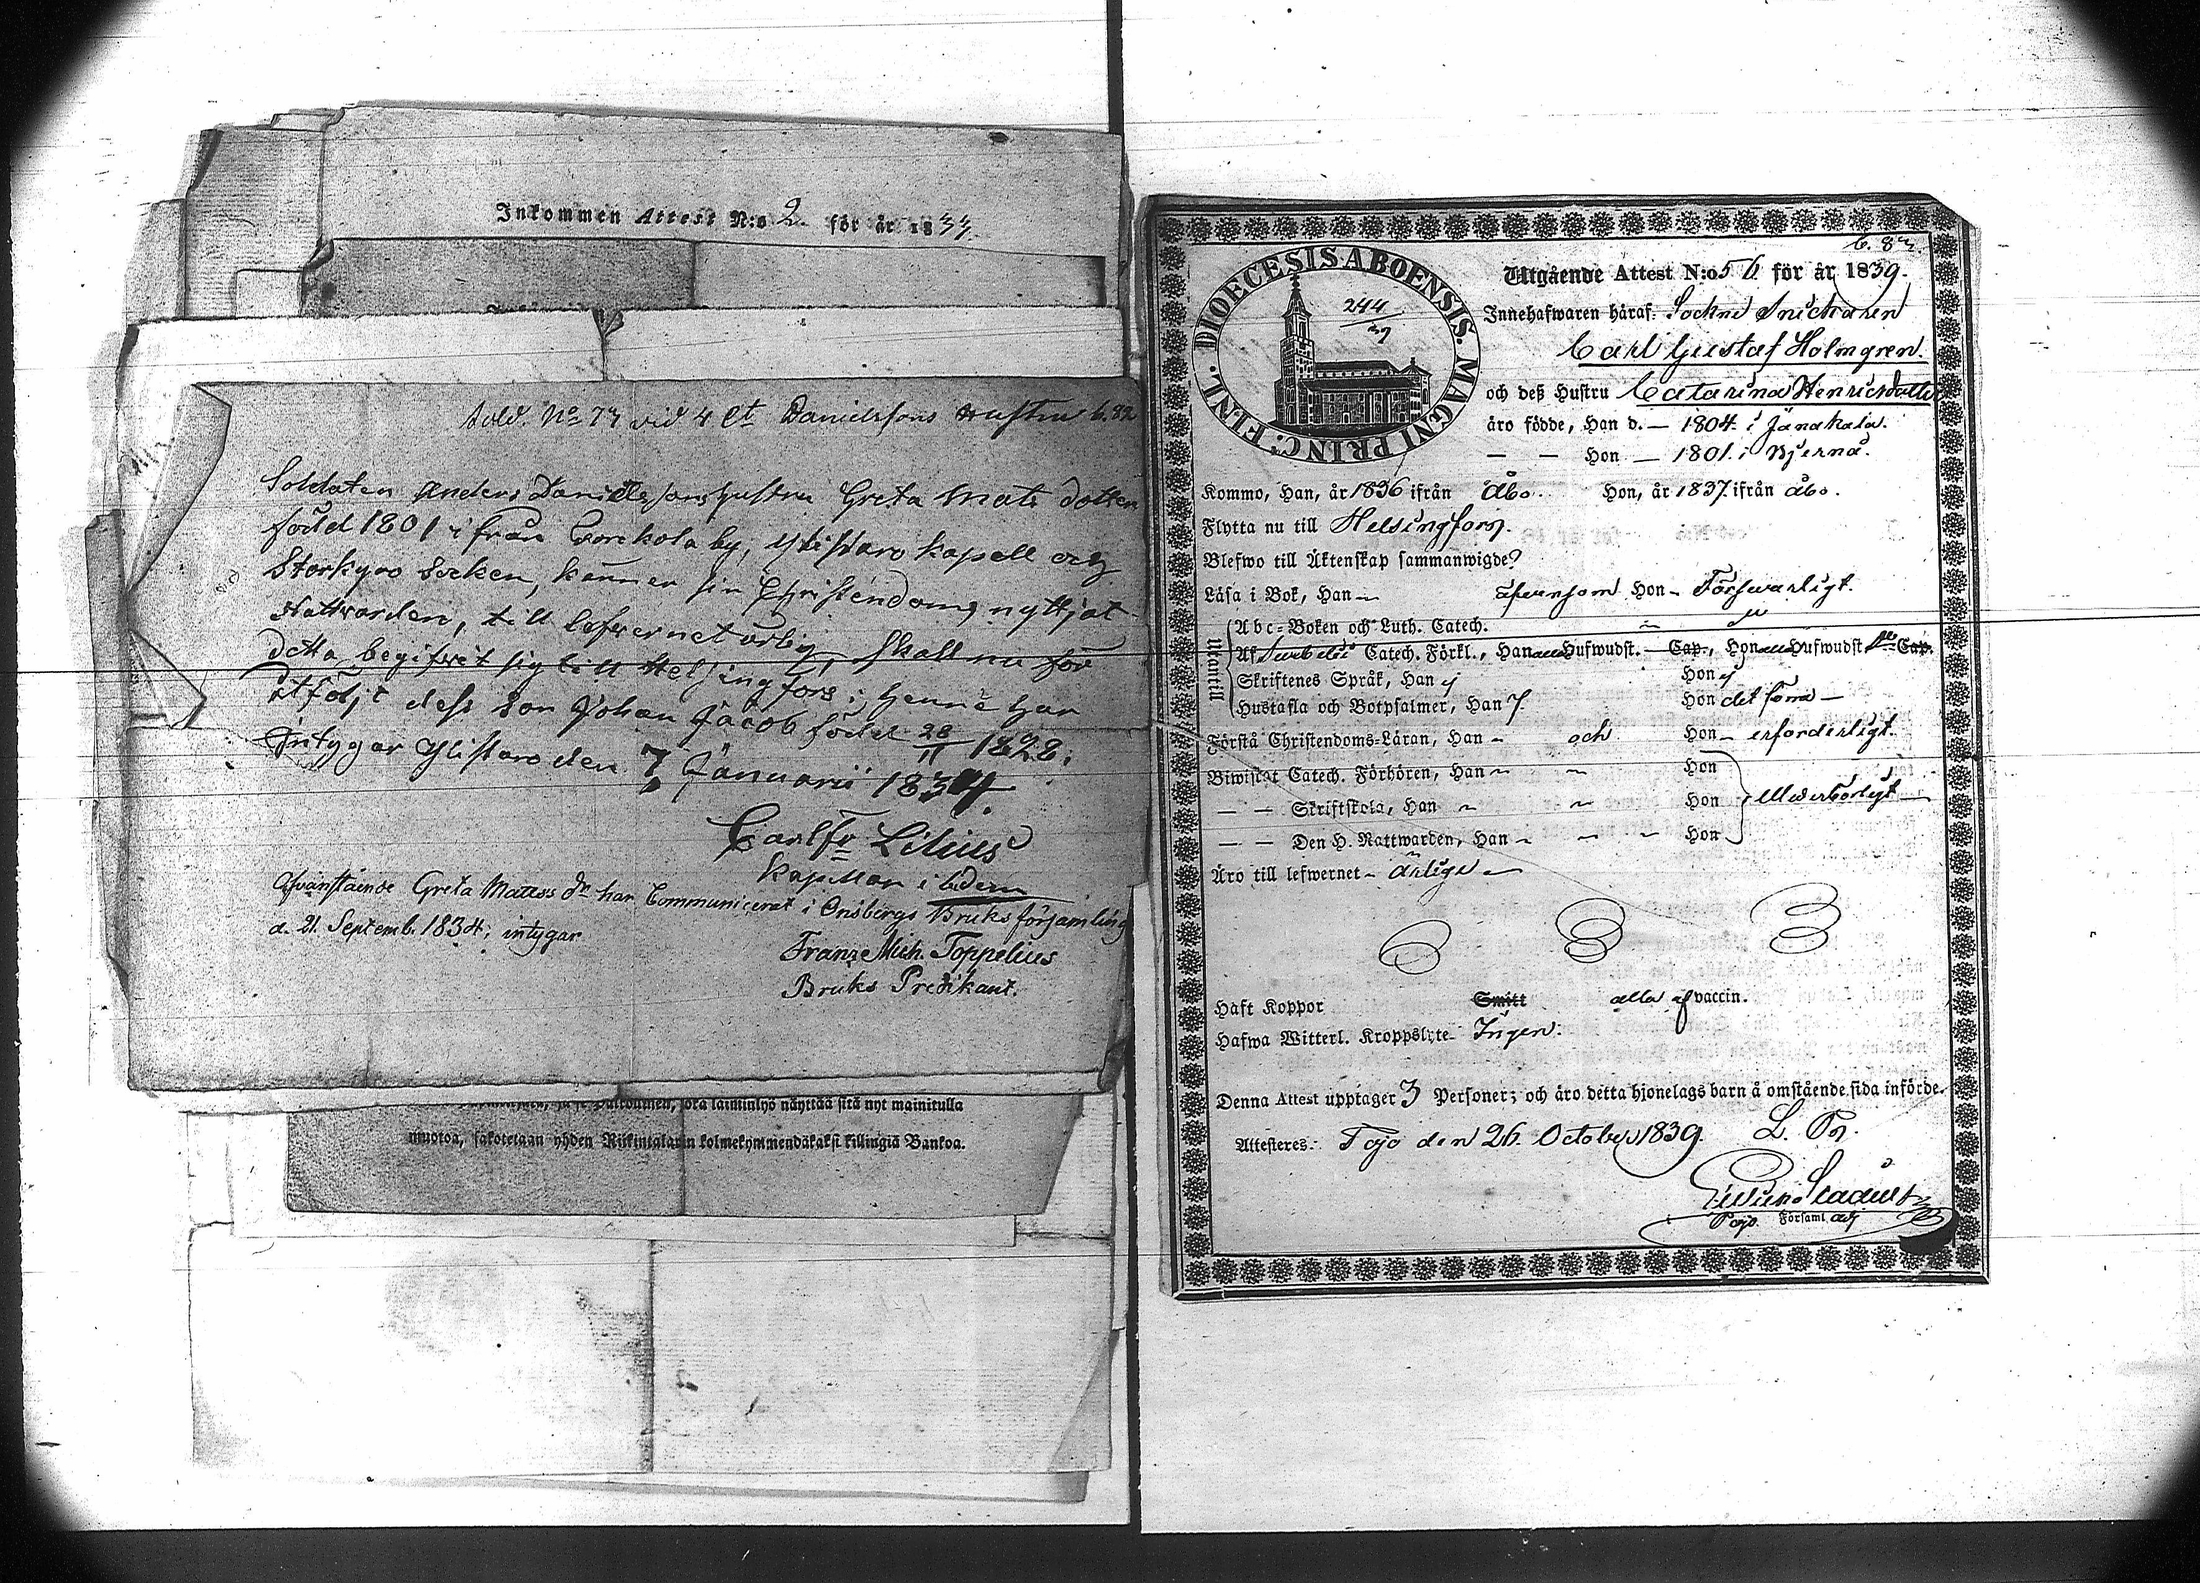 Inkommen Attest N:o 2. för år 1833.
Sold. No 77 vid 4 Ct Danielssons Hustru b. 82
Soldaten Anders Danielssons Hustru Greta Mats dotter
född 1801 ifrån by, Ylistaro kapell och
Storkyro Socken, känner sin Christendom, nyttjat
Nattvarden, till lefvernet ärlig, skall nu för
detta begifvit sig till Helsingfors; henne har
åtföljt dess son Johan Jacob född 28/11 1828;
intygar Ylistaro den 7 Januarii 1834.
Carl Fr Lilius
Kapellan i
Ofvanstående Greta Matss dr har Communicerat i Onsbergs Bruks församling
d. 21. Septemb. 1834; intygar
Franz Mich. Toppelius
Bruks Predikant.
jota laiminlyö näyttää sitä nyt mainitulla
muotoa, sakotetaan yhden Riikintalarin kolmekymmendäkaksi killingiä Bankoa.
b. 82.
DIOECESIS ABOENSIS. MAGNI PRINC: FINL.
244
39
Utgående Attest N:o 56 för år 1839.
Innehafwaren häraf: Sockne Snickaren
Carl Gustaf Holmgren.
och deß Hustru Catarina Henricsdotter
äro födde, Han d. — 1804. i Janakala.
— — Hon — 1801. i Bjerno.
Kommo, Han, år 1836 ifrån Åbo. Hon, år 1837. ifrån Åbo.
Flytta nu till Helsingfors.
Blefwo till Äktenskap sammanwigde?
Läsa i Bok, Han — äfvensom Hon — Försvarligt.
Utantill
Abc-Boken och Luth. Catech.
Af Svebelii Catech. Förkl., Han alla Hufwudst. — Cap., Hon alla Hufwudst. Cap.
Skriftenes Språk, Han ej Hon ej
Hustafla och Botpsalmer, Han 7. Hon det förra —
Förstå Christendoms-Läran, Han — och Hon — erforderligt.
Biwistat Catech. Förhören, Han — Hon
— — Skriftskola, Han — Hon Wederbörligt —
— — Den H. Nattwarden, Han — Hon
Äro till lefwernet — ärlige —
Haft Koppor Smitt alla af vaccin.
Hafwa Witterl. Kroppslyte — Ingen.
Denna Attest upptager 3 Personer; och äro detta hjonelags barn å omstående sida införde.
Attesteras: Pojo den 26. October 1839. L. Pr.
Pojo Församl. adj